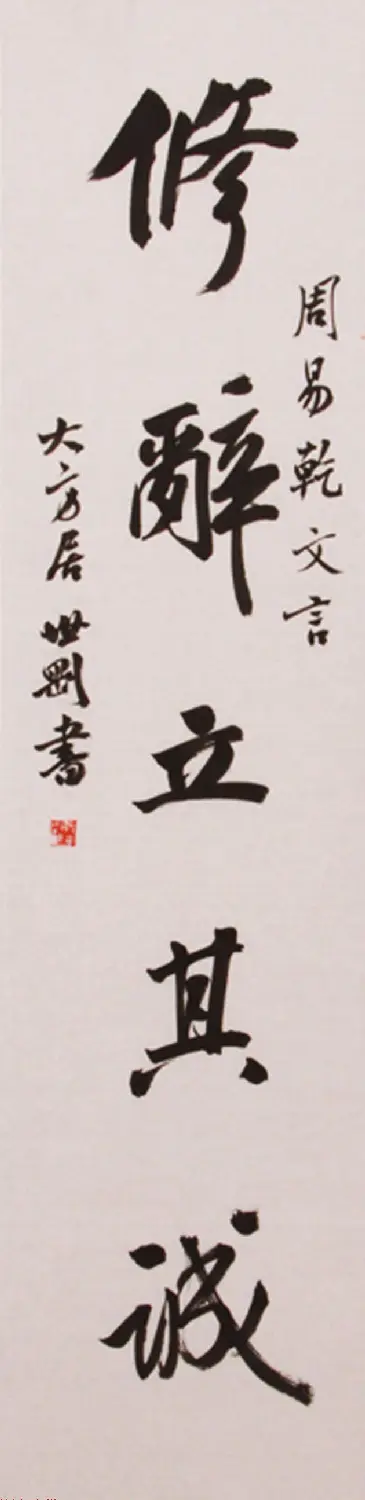 周易乾文言
修辭立其誠
大方居世剛書